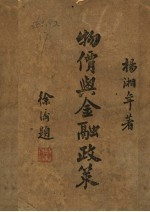 楊湘年著
物價與金融政策
徐堪題